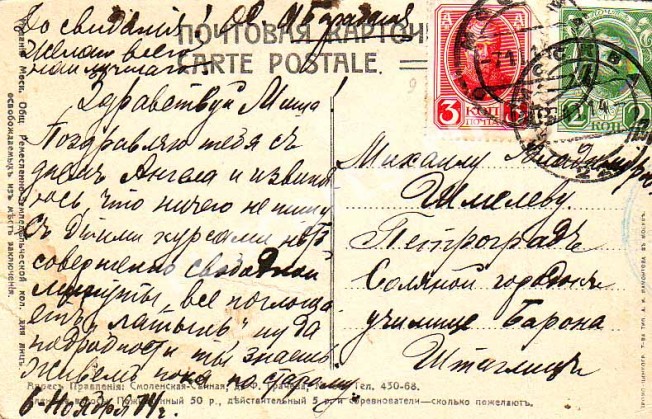 До свидания!
Желаю всего
наилучшаго.
ПОЧТОВАЯ КАРТОЧ
CARTE POSTALE.
3 КОП 3
2 КОП 2
МОСКВА
14
Здравствуй Миша!
Поздравляю тебя с
днем Ангела и извиня
юсь что ничего не пишу
С этими курсами нет
совершенно свободной
минуты, все поглоща
ет „латынь" ну да
подробности ты знаешь
Живем пока по старому.
6 Ноября 14 г.
Михаилу
Шмелеву
Петроградъ
Соляной городок
училище Барона
Штиглица
Издание Моск. Общ. Ремесленно-Земледельческой кол. для лиц,
освобождаемыхъ изъ мѣстъ заключенія.
Адресъ Правленія: Смоленская-Сѣнная, Тел. 430-68.
взносы: Пожизненный 50 р., дѣйствительный 5 р. и соревнователи—сколько пожелаютъ.